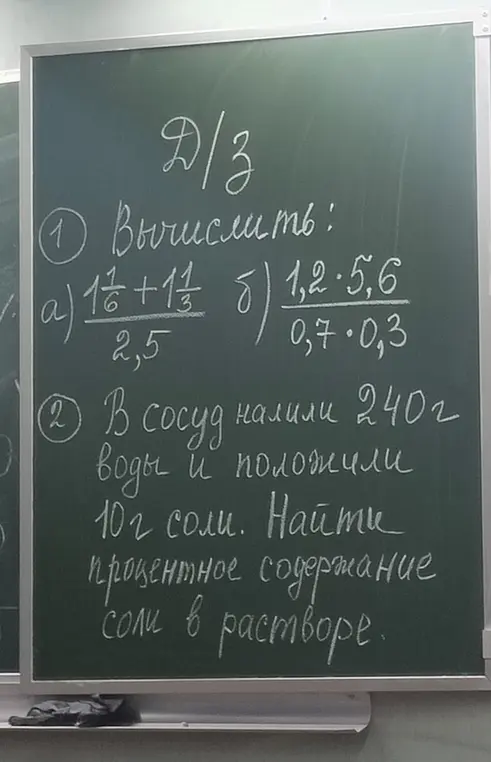 Д/з
① Вычислить:
а) (1 1/6 + 1 1/3) / 2,5 б) (1,2 · 5,6) / (0,7 · 0,3)
② В сосуд налили 240г
воды и положили
10г соли. Найти
процентное содержание
соли в растворе.